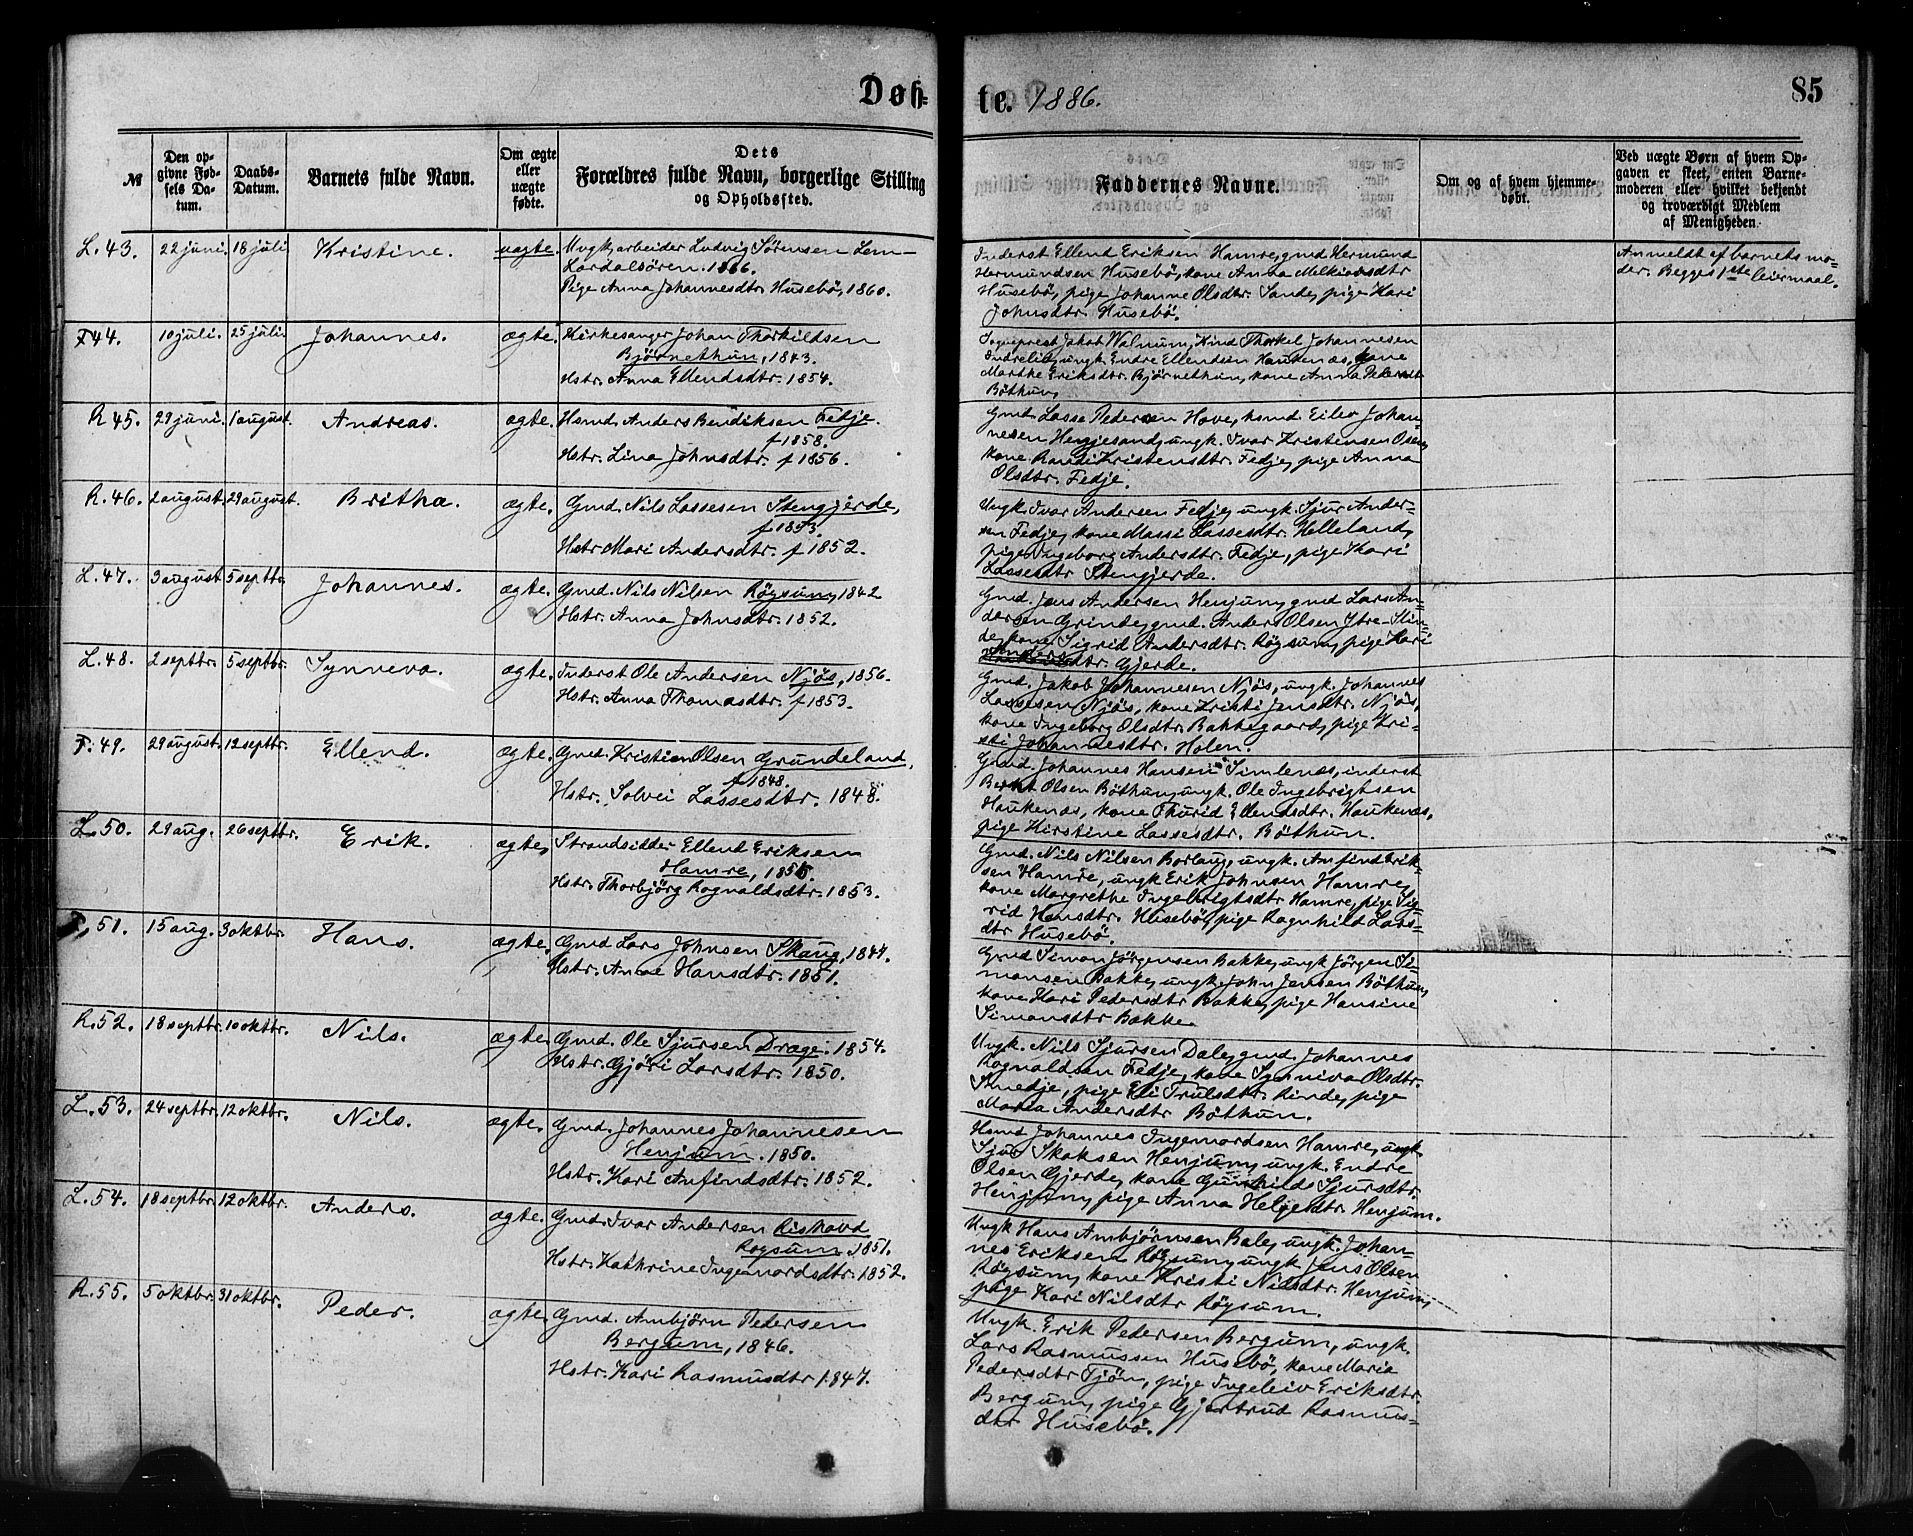 Døb-
te. 1886.
85
№
Den opgivne Fødsels Datum.
Daabs-Datum.
Barnets fulde Navn.
Om ægte eller uægte fødte.
Dets Forældres fulde Navn, borgerlige Stilling og Opholdssted.
Faddernes Navne.
Om og af hvem hjemmedøbt.
Ved uægte Børn af hvem Opgaven er skeet, enten Barnemoderen eller hvilket bekjendt og troværdigt Medlem af Menigheden.
L. 43. 22 juni. 18 juli Kristine. uægte. Ungk, arbeider Ludvig Sörensen Lem-
Lærdalsören. 1866.
Pige Anna Johannesdtr. Husebö, 1860.
Inderst Ellend Eriksen Hamre, gmd Hermund
Hermundsen Husebö, kone Anna Melkiorsdtr
Husebö, pige Johanne Olsdtr. Sande, pige Kari
Johnsdtr. Husebö.
Anmeldt af barnets mo-
der. Begges 1ste leiermaal.
F 44. 10 juli. 25 juli Johannes. ægte. Kirkesanger Johan Thorkildsen
Bjørnethun, 1843.
Hstr. Anna Ellendsdtr. 1854.
Sogneprest Jakob Walnum, Kmd Thorkel Johannesen
Indrelid, ungk. Endre Ellendsen Haukenæs, kone
Marthe Eriksdtr. Bjørnethun, kone Anna Pedersdt
Böthun,
R 45. 29 juni. 1 august. Andreas. ægte. Hsmd Anders Bendiksen Fedje.
f 1858.
Hstr. Lina Johnsdtr. f 1856.
Gmd. Lasse Pedersen Hove, hsmd Eilev Johan-
nesen Henjesand, ungk. Ivar Kristensen Osen,
kone Randi Kristensdtr. Fedje, pige Anna
Olsdtr. Fedje.
R. 46. 2 august. 29 august. Britha. ægte. Gmd. Nils Lassesen Stengjerde,
f 1853.
Hstr Mari Andersdtr. f 1852.
Ungk. Ivar Andersen Fedje, ungk. Sjur Ander-
sen Fedje, kone Massi Lassesdtr. Helleland,
pige Ingeborg Andersdtr. Fedje, pige Kari
Lassesdtr Stengjerde.
L. 47. 3 august 5 septbr. Johannes. ægte. Gmd. Nils Nilsen Röysum, 1842
Hstr. Anna Johnsdtr. 1852.
Gmd. Jens Andersen Henjum, gmd Lars An-
dersen Grinde, gmd. Anders Olsen Ytre-Slin-
de, kone Sigrid Andersdtr. Røysum, pige Kari
Andersdtr. Gjerde.
L. 48. 2 septbr. 5 septbr. Synneva. ægte. Inderst Ole Andersen Njøs, 1856.
Hstr. Anna Thomasdtr. f 1853.
Gmd. Jakob Johannesen Njøs, ungk. Johannes
Lassesen Njös, kone Kristi Jensdtr. Njös,
kone Ingeborg Olsdtr. Bakkegaard, pige Kri-
sti Johannesdtr. Holen.
F. 49. 29 august. 12 septbr. Ellend. ægte. Gmd. Kristian Olsen Grundeland,
f 1848.
Hstr. Solvei Lassesdtr. 1848.
Gmd. Johannes Hansen Simlenæs, inderst
Berent Olsen Böthun, ungk. Ole Ingebrigtsen
Haukenæs, kone Thurid Ellendsdtr. Haukenæs,
pige Kirstine Lassesdtr. Böthun.
L. 50. 29 aug. 26 septbr. Erik. ægte, Strandsidder Ellend Eriksen
Hamre, 1855.
Hstr. Thorbjörg Rognaldsdtr. 1853.
Gmd. Nils Nilsen Borlaug, ungk. Anfind Erik-
sen Hamre, ungk Erik Johnsen Hamre,
kone Margrethe Ingebrigtsdtr Hamre, pige Sig-
rid Hansdtr. Husebö, pige Ragnhild Lars-
dtr Husebö.
F. 51. 15 aug. 3 oktbr. Hans. ægte. Gmd Lars Johnsen Skaug, 1847.
Hstr. Anna Hansdtr. 1851.
Gmd Simon Jörgensen Bakke, ungk Jörgen Si-
monsen Bakke, ungk. John Jensen Böthun,
kone Kari Pedersdtr Bakke, pige Hansine
Simonsdtr Bakke.
R. 52. 18 septbr. 10 oktbr. Nils. ægte. Gmd. Ole Sjursen Dræge. 1854.
Hstr. Gjöri Larsdtr. 1850.
Ungk. Nils Sjursen Dale, gmd. Johannes
Rognaldsen Fedje, kone Synniva Olsdtr.
Smedje, pige Eli Trulsdtr. Rinde, pige
Maria Andersdtr Böthun.
L. 53. 24 septbr. 12 oktbr. Nils. ægte. Gmd. Johannes Johannesen
Henjum. 1850.
Hstr. Kari Anfindsdtr. 1852.
Hsmd Johannes Ingemordsen Hamre, ungk
Sjur Skaksen Henjum, ungk. Endre
Olsen Gjerde, kone Gunhilde Sjursdtr.
Henjum, pige Anna Helgesdtr. Henjum.
L. 54. 18 septbr. 12 oktbr. Anders. ægte. Gmd. Ivar Andersen Rishovd
Røysum, 1851.
Hstr. Kathrine Ingemordsdtr. 1852.
Ungk Hans Ambjörnsen Bale, ungk. Johan-
nes Eriksen Röysum, ungk Jens Olsen
Röysum, kone Kristi Nilsdtr. Henjum,
pige Kari Nilsdtr Röysum.
R. 55. 5 oktbr. 31 oktbr. Peder. ægte. Gmd. Ambjörn Pedersen
Bergum, 1846.
Hstr. Kari Rasmusdtr 1847.
Ungk. Erik Pedersen Bergum, ungk.
Lars Rasmussen Husebö, kone Maria
Pedersdtr Tjön, pige Ingeleiv Eriksdtr.
Bergum, pige Gjertrud Rasmus-
dtr Husebö.